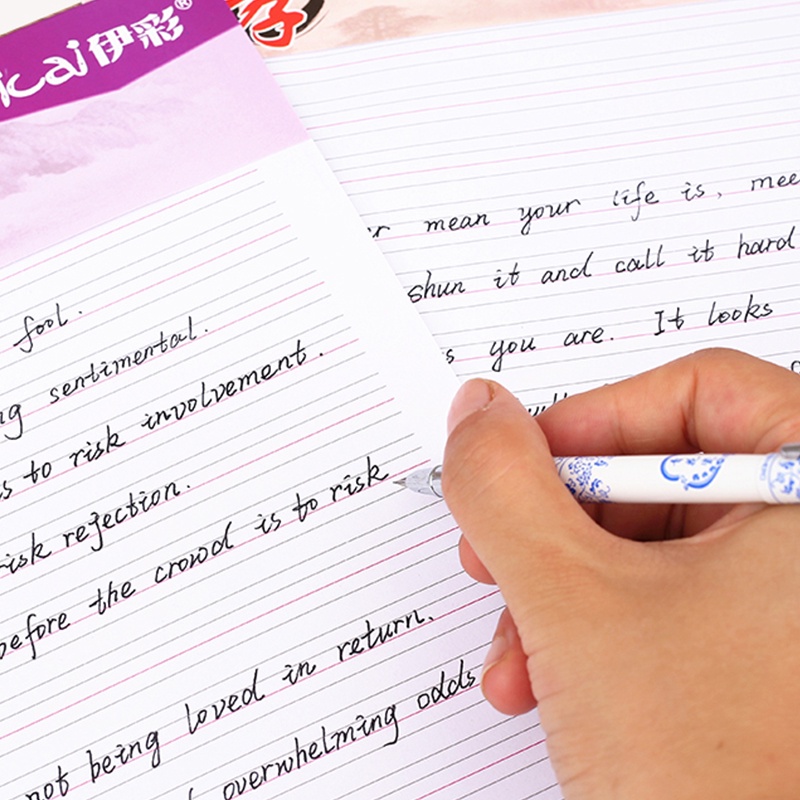 icai伊彩®
fool.
ng sentimental.
s to risk involvement.
risk rejection.
before the crowd is to risk
not being loved in return.
overwhelming odds
r mean your life is, mee
shun it and call it hard
s you are. It looks